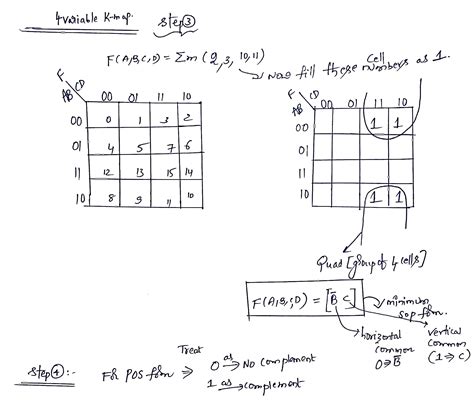 4variable K-map. Step③
F(A,B,C,D) = Σm (2,3, 10,11)
↳ Now fill these Cell numbers as 1.
F CD
AB 00 01 11 10
00 0 1 3 2
01 4 5 7 6
11 12 13 15 14
10 8 9 11 10
F CD
AB 00 01 11 10
00 1 1
01
11
10 1 1
Quad [group of 4 cells]
F(A,B,C,D) = [B̅ C] → minimum sop form.
horizontal common 0⇒B̅
vertical common (1⇒C)
Step④:- For POS form ⇒ Treat 0 as→ No complement
1 as→ complement